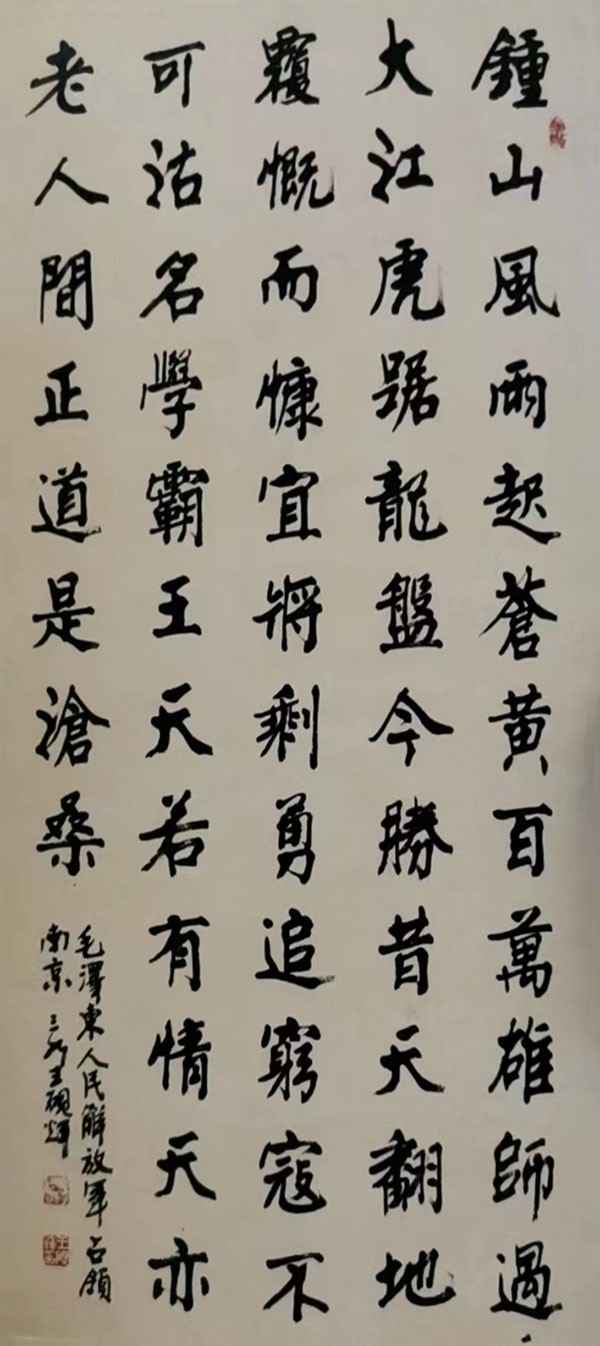 鍾山風雨起蒼黃百萬雄師過
大江虎踞龍盤今勝昔天翻地
覆慨而慷宜將剩勇追窮寇不
可沽名學霸王天若有情天亦
老人間正道是滄桑
毛澤東人民解放軍占領
南京 王硯輝